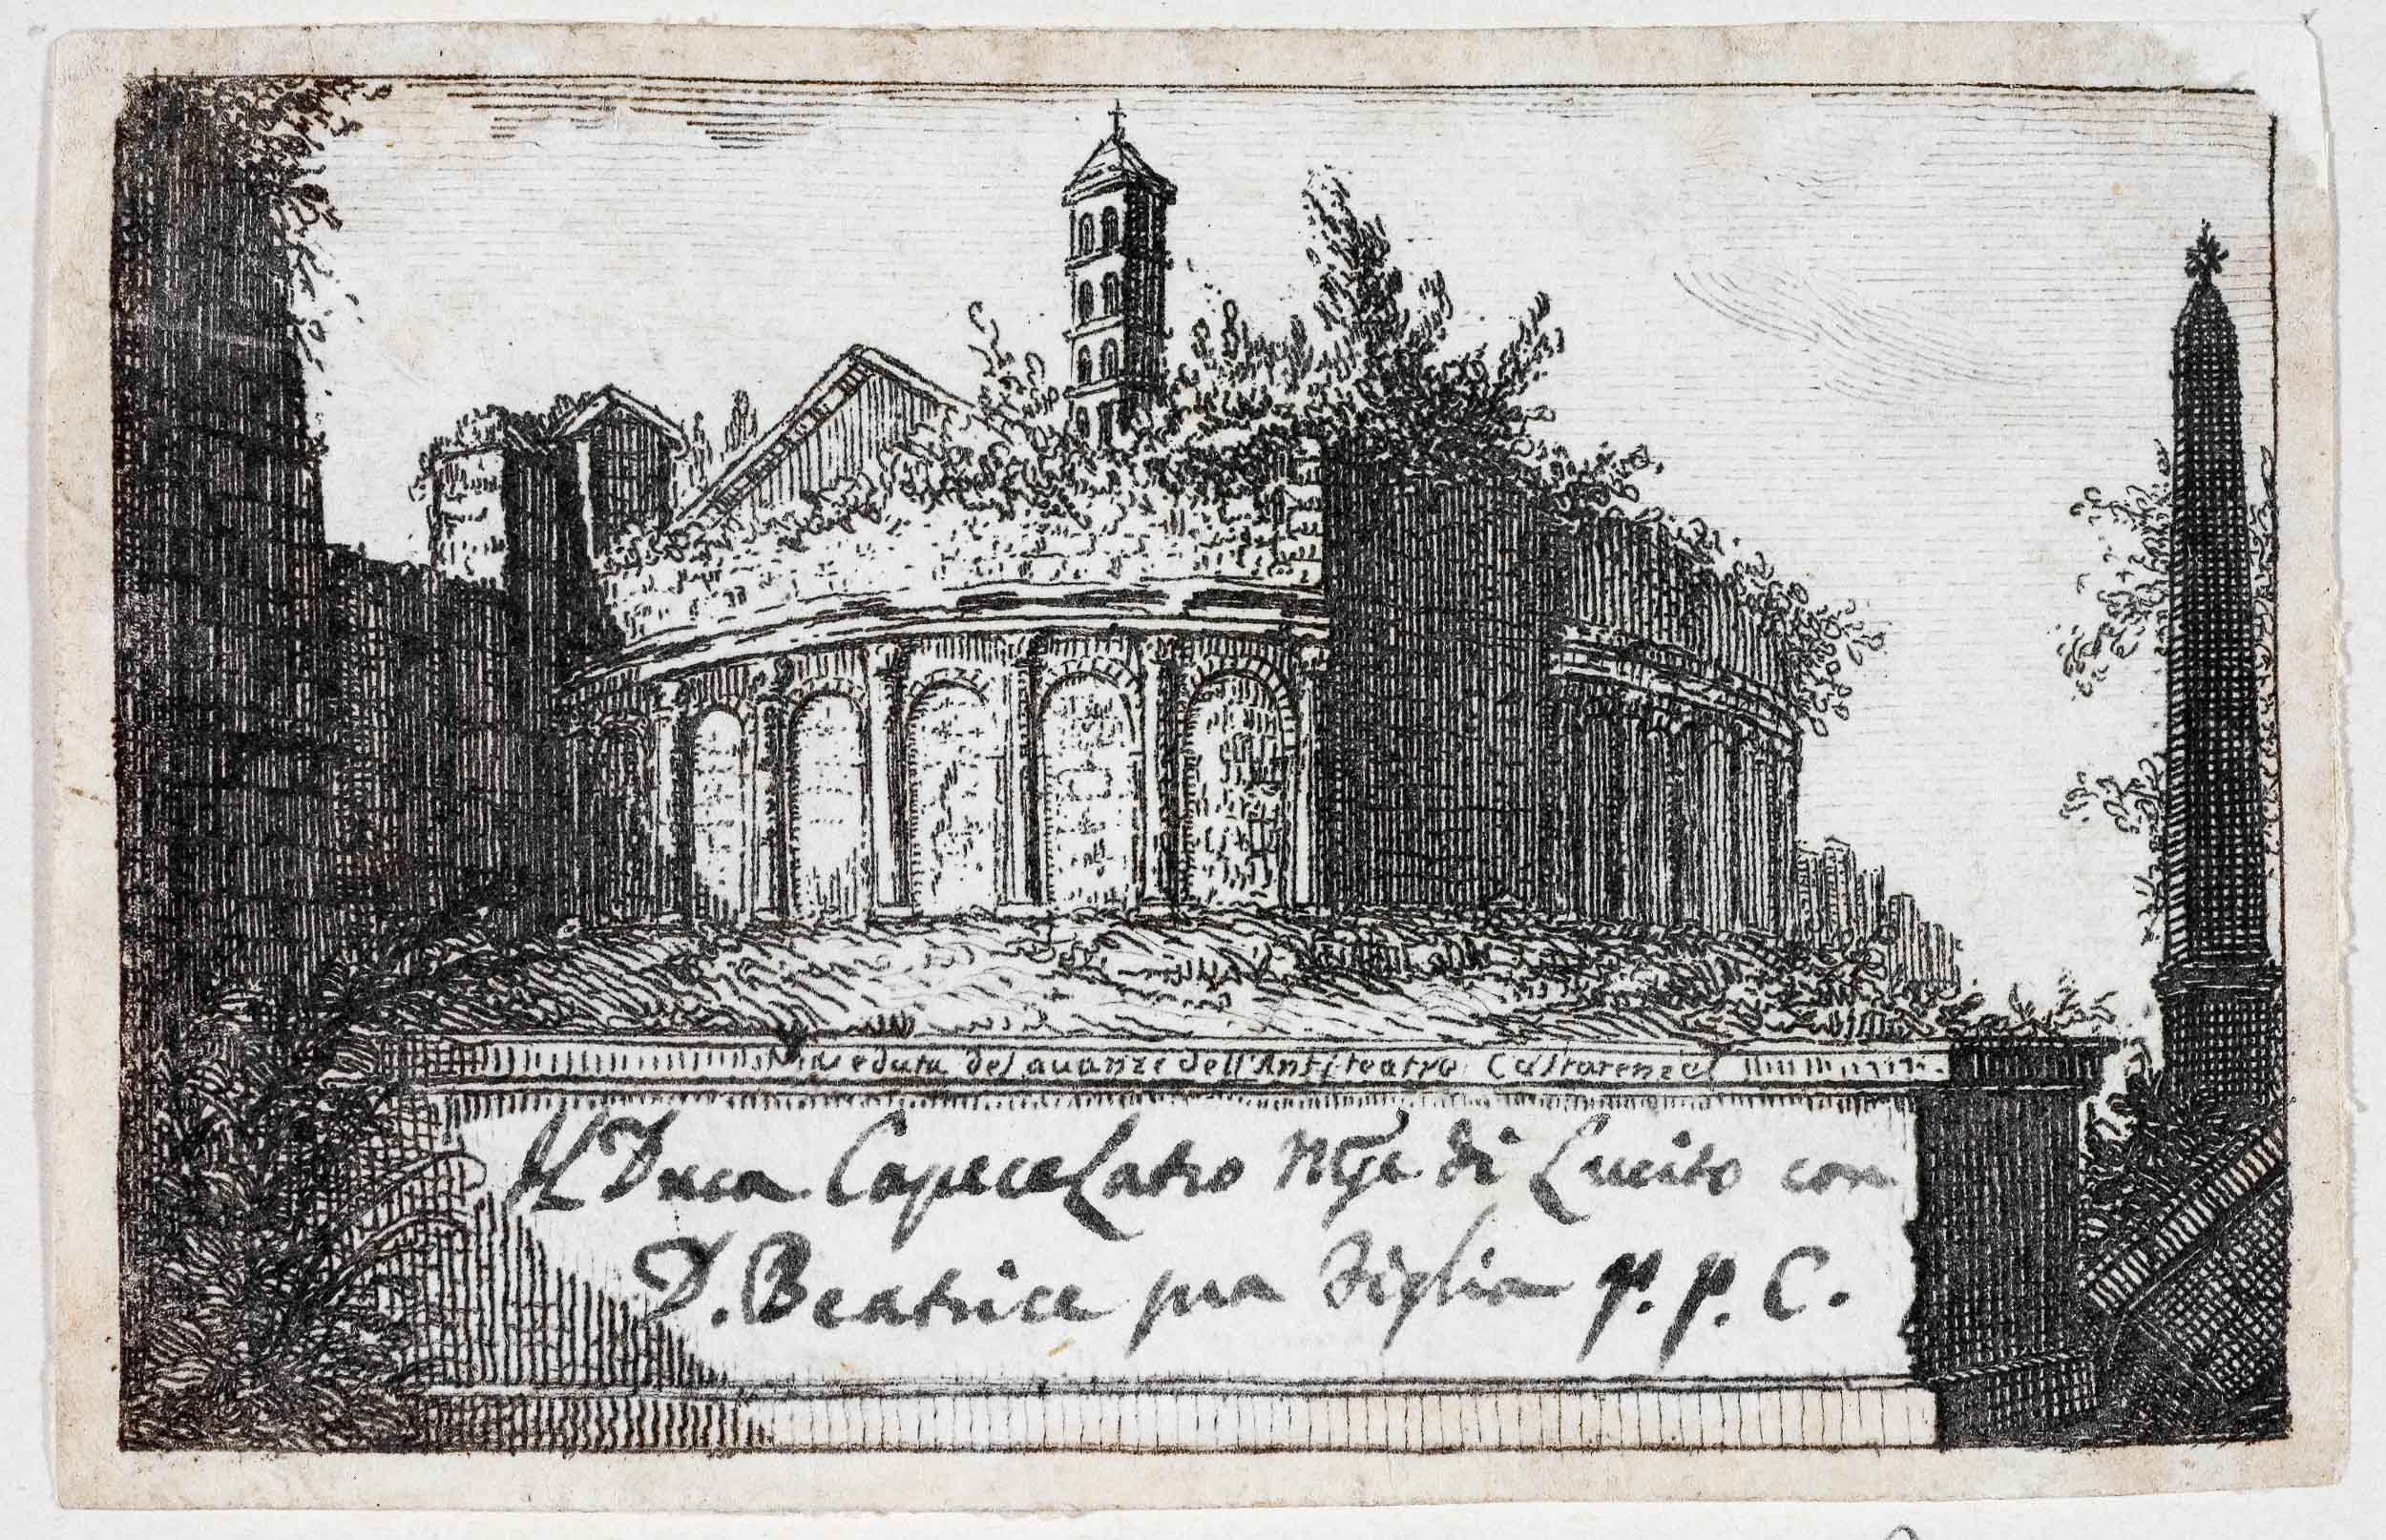 Veduta del auanze dell'Anfiteatro Castrense
Il Duca CapeceLatro Mse di Lucito con
D. Beatrice sua Figlia p. p. C.